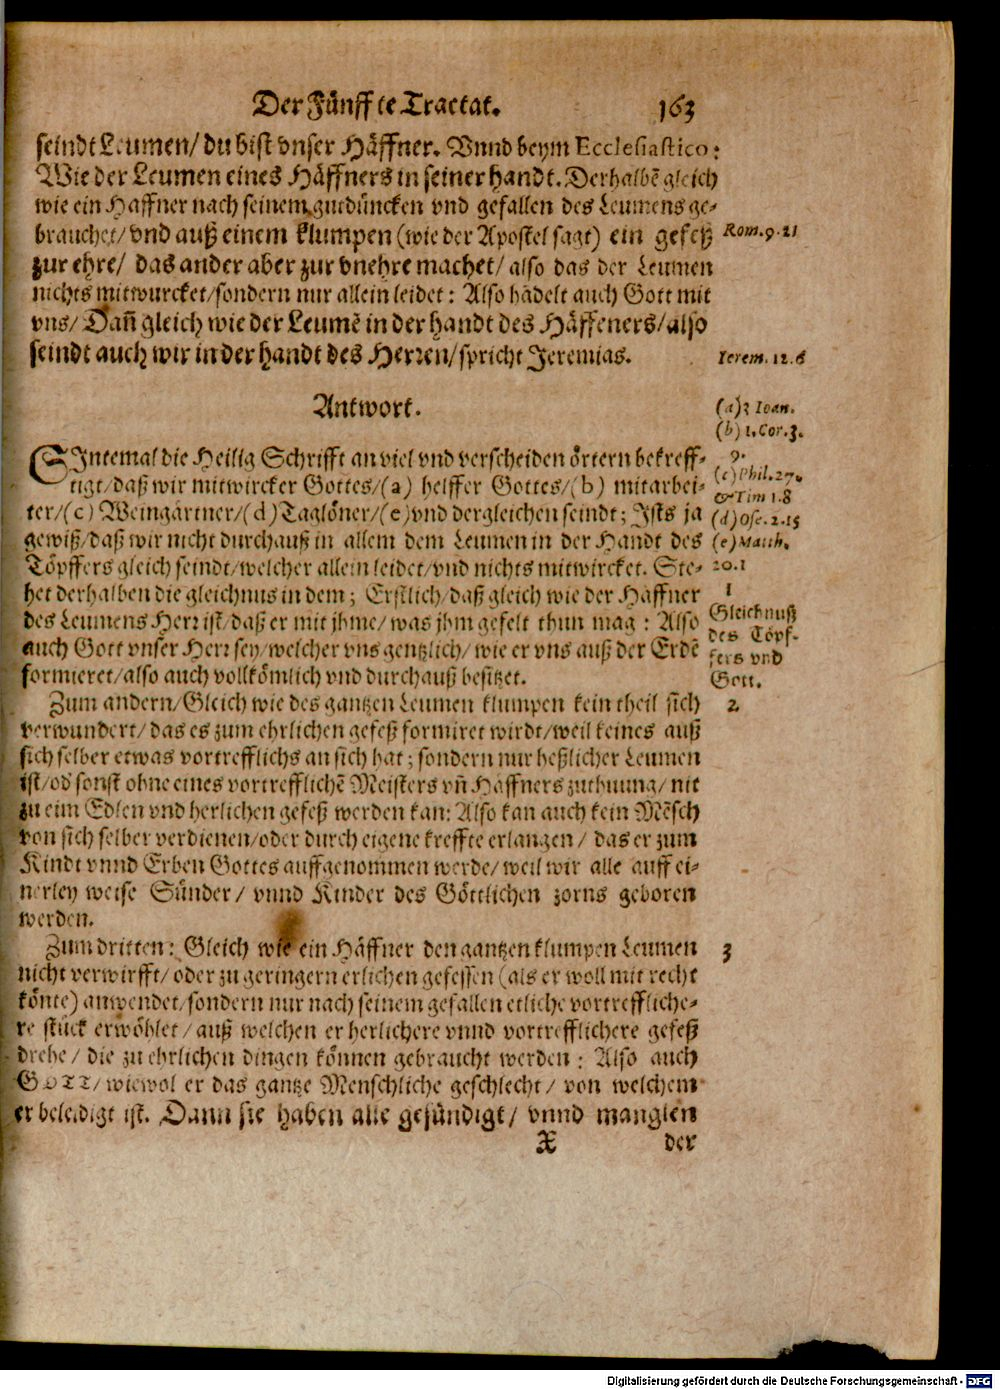 Der Fünffte Tractat. 163
seindt Leumen/ du bist vnser Häffner. Vnnd beym Ecclesiastico:
Wie der Leumen eines Häffners in seiner handt. Derhalbẽ gleich
wie ein Haffner nach seinem gutdüncken vnd gefallen des Leumens ge-
brauchet/ vnd auß einem klumpen (wie der Apostel sagt) ein gefeß
Rom. 9. 21
zur ehre/ das ander aber zur vnehre machet/ also das der Leumen
nichts mitwurcket/ sondern nur allein leidet: Also hãdelt auch Gott mit
vns/ Dañ gleich wie der Leumẽ in der handt des Häffeners/ also
seindt auch wir in der handt des Herren/ spricht Jeremias.
Ierem. 12. 6
Antwort.
(a) 3 Ioan.
(b) 1. Cor. 3.
9.
(c) Phil. 27.
& Tim 1. 8
(d) Ose. 2. 15
(e) Matth.
20. 1
SIntemal die Heilig Schrifft an viel vnd verscheiden örtern bekreff-
tigt/ daß wir mitwircker Gottes/ (a) helffer Gottes/ (b) mitarbei-
ter/ (c) Weingärtner/ (d) Taglöner/ (e) vnd dergleichen seindt; Ists ja
gewiß/ daß wir nicht durchauß in allem dem Leumen in der Handt des
Töpffers gleich seindt/ welcher allein leidet/ vnd nichts mitwircket. Ste-
het derhalben die gleichnus in dem; Erstlich/ daß gleich wie der Häffner
des Leumens Herr ist/ daß er mit jhme/ was jhm gefelt thun mag: Also
auch Gott vnser Herr sey/ welcher vns gentzlich/ wie er vns auß der Erdẽ
formieret/ also auch vollkömlich vnd durchauß besitzet.
1
Gleichnuß
des Töpf-
fers vnd
Gott.
Zum andern/ Gleich wie des gantzen Leumen klumpen kein theil sich
2.
verwundert/ das es zum ehrlichen gefeß formiret wirdt/ weil keines auß
sich selber etwas vortrefflichs an sich hat; sondern nur heßlicher Leumen
ist/ od sonst ohne eines vortrefflichẽ Meisters vñ Häffners zuthuung/ nit
zu eim Edlen vnd herlichen gefeß werden kan: Also kan auch kein Mẽsch
von sich selber verdienen/ oder durch eigene kreffte erlangen/ das er zum
Kindt vnnd Erben Gottes auffgenommen werde/ weil wir alle auff ei-
nerley weise Sünder/ vnnd Kinder des Göttlichen zorns geboren
werden.
Zum dritten: Gleich wie ein Häffner den gantzen klumpen Leumen
3
nicht verwirfft/ oder zu geringern erlichen gefessen (als er woll mit recht
könte) anwendet/ sondern nur nach seinem gefallen etliche vortreffliche-
re stück erwöhlet/ auß welchen er herlichere vnnd vortrefflichere gefeß
drehe/ die zu ehrlichen dingen können gebraucht werden: Also auch
GOTT/ wiewol er das gantze Menschliche geschlecht/ von welchem
er beleidigt ist. Dann sie haben alle gesündigt/ vnnd manglen
X der
Digitalisierung gefördert durch die Deutsche Forschungsgemeinschaft - DFG